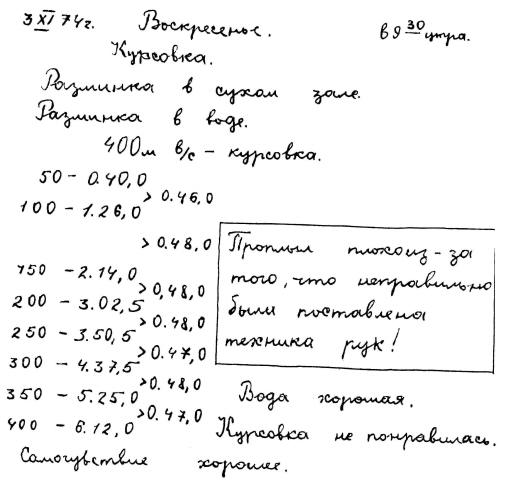 3 XI 74г. Воскресенье. в 9 30 утра.
Курсовка.
Разминка в сухом зале.
Разминка в воде.
400м в/с - курсовка.
50 - 0.40,0
> 0.46,0
100 - 1.26,0
> 0.48,0
150 - 2.14,0
> 0,48,0
200 - 3.02,5
> 0.48,0
250 - 3.50,5
> 0.47,0
300 - 4.37,5
> 0.48,0
350 - 5.25,0
> 0.47,0
400 - 6.12,0
Проплыл плохо из-за
того, что неправильно
были поставлена
техника рук!
Вода хорошая.
Курсовка не понравилась.
Самочувствие хорошее.